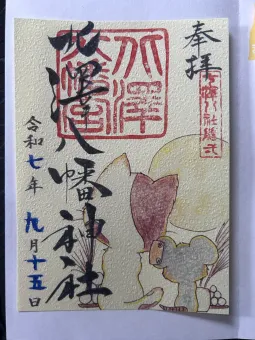 奉拝
北澤八幡神社
北澤
令和七年 九月十五日